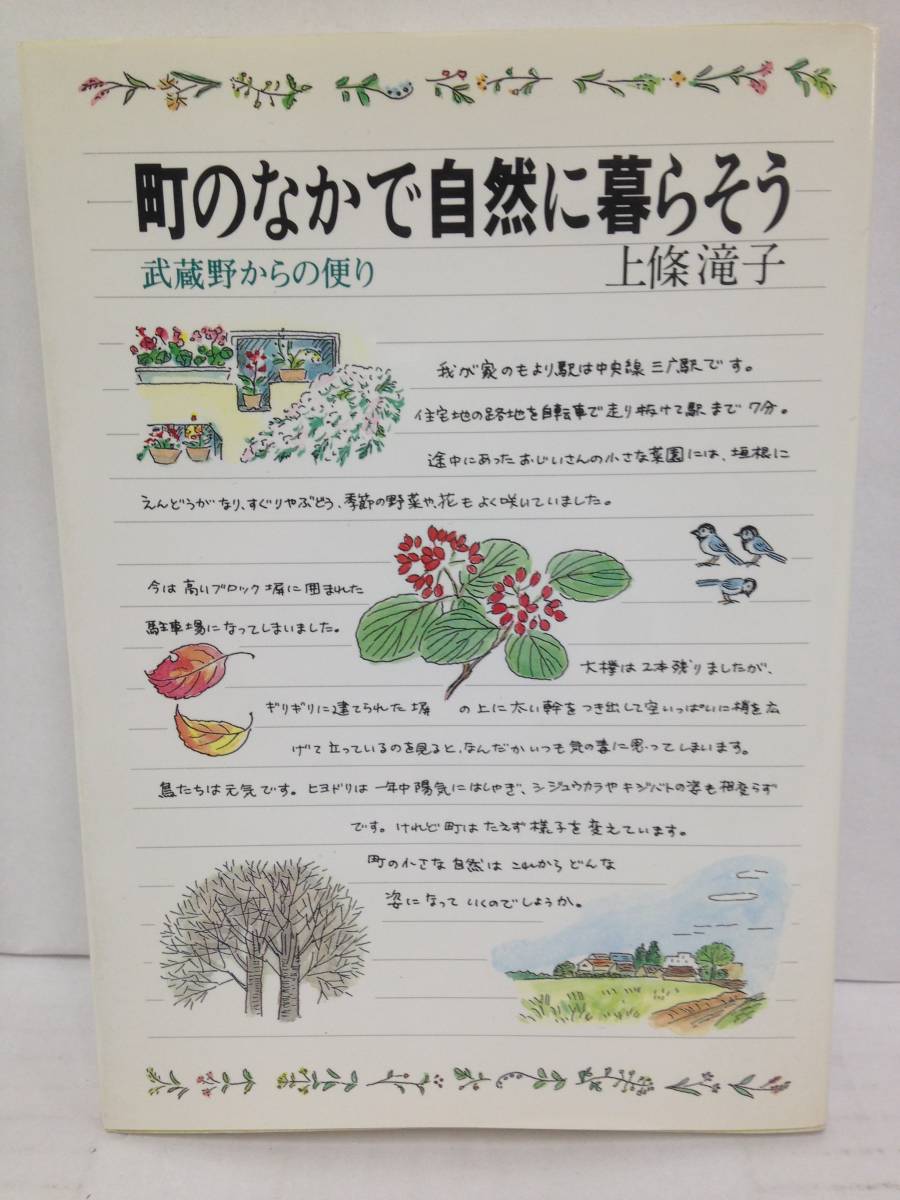 町のなかで自然に暮らそう
武蔵野からの便り
上條滝子
我が家のもより駅は中央線三广駅です。
住宅地の路地を自転車で走り抜けて駅まで7分。
途中にあったおじいさんの小さな菜園には、垣根に
えんどうがなり、すぐりやぶどう、季節の野菜や、花もよく咲いていました。
今は高いブロック塀に囲まれた
駐車場になってしまいました。
大欅は2本残りましたが、
ギリギリに建てられた塀の上に太い幹をつき出して空いっぱいに梢を広
げて立っているのを見ると、なんだかいつも気の毒に思ってしまいます。
鳥たちは元気です。ヒヨドリは一年中陽気にはしゃぎ、シジュウカラやキジバトの姿も相変らず
です。けれど町はたえず様子を変えています。
町の小さな自然はこれからどんな
姿になっていくのでしょうか。